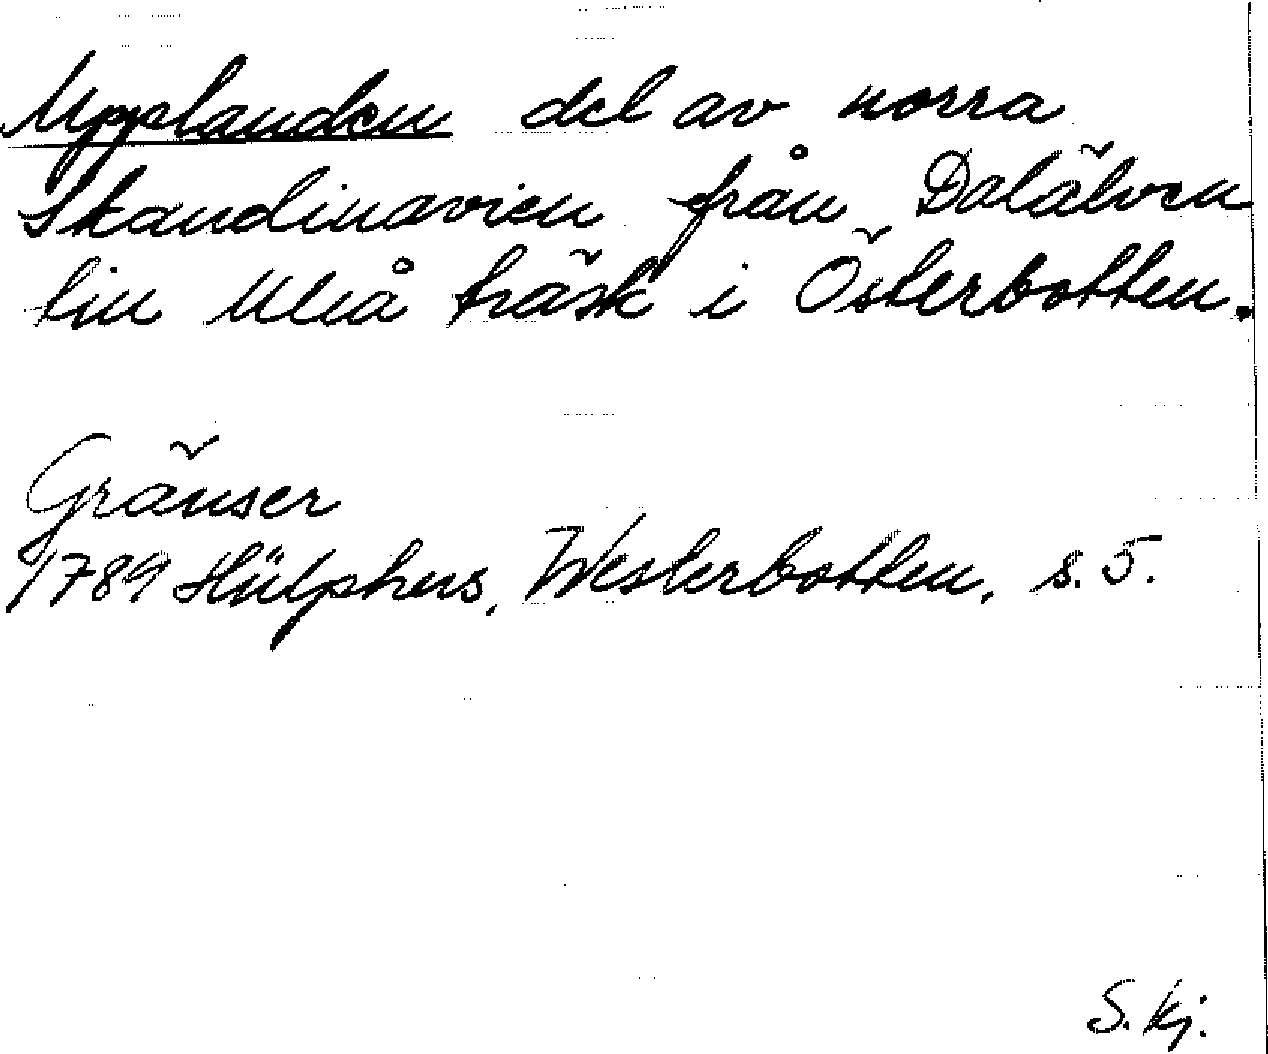 Upplanden del av norra
Skandinavien från Dalälven
till Uleå träsk i Österbotten.
Gränser
1789 Hülphers, Westerbotten, s. 5.
S. Kj.